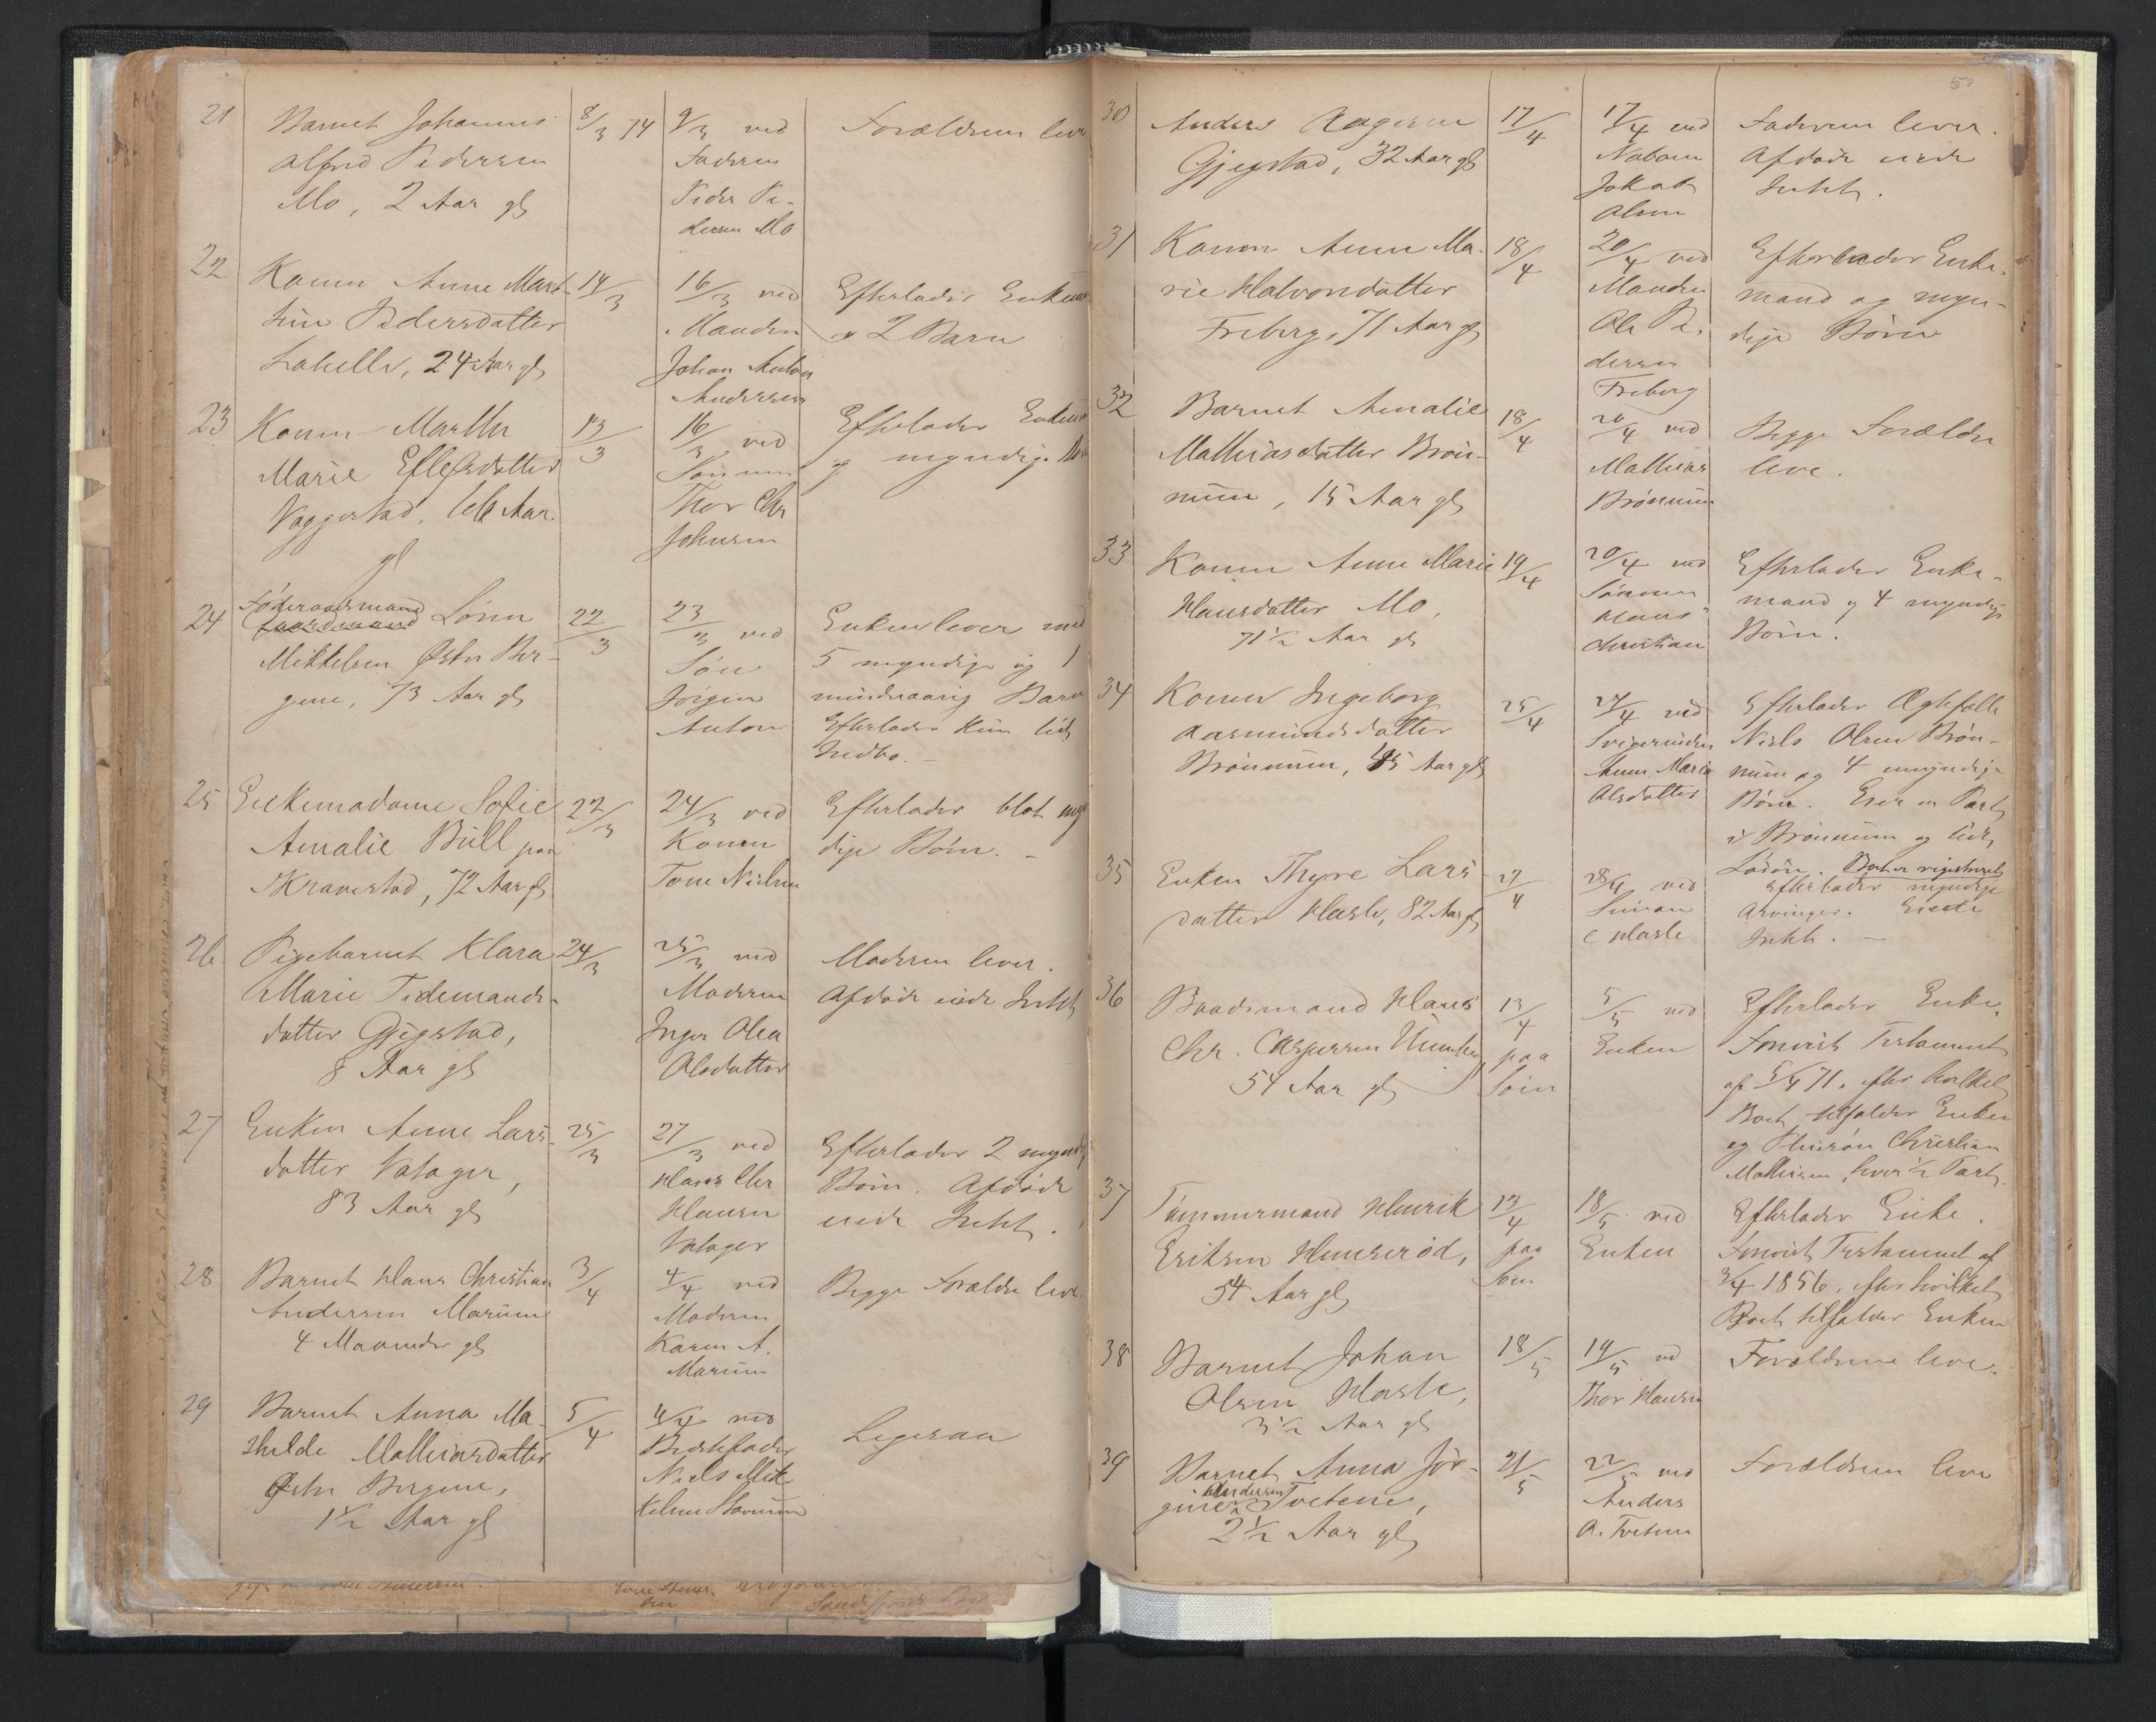 21 Barnet Johannes 8/3 74 9/3 ved Forældrene leve
Alfred Pedersen Faderen
Mo, 2 Aar gl Peder Pe-
dersen Mo
22 Konen Anne Mart- 14/3 16/3 ved Efterlader Enkem
hine Pedersdatter Manden 2 Børn
24 Aar gl Johan Anton
Andersen
23 Konen Marthe 13/3 16/3 ved Efterlader Enkem
Marie Ellefsdatter Sønnen og myndige
Vaggestad, 66 Aar Thor Chr
gl Johnsen
Føderaadsmand
24 Sørn 22/3 23/3 ved Enken lever med
Mikkelsen Østre Ber- Søn 5 myndige og 1
gene, 73 Aar gl Jørgen mindreaarig Barn
Anton Efterlader kun lidt
Indbo. -
25 Enkemadame Sofie 22/3 24/3 ved Efterlader blot myn
Amalie Bull paa Konen dige Børn. -
Skravestad, 72 Aar gl Tone Nielsen
26 Pigebarnet Klara 24/3 25/3 ved Moderen lever.
Marie Tidemands- Moderen Afdøde eiede Intet
datter Gjegstad, Inger Olea
8 Aar gl Olsdatter
27 Enken Anne Lars- 25/3 27/3 ved Efterlader 2 myndig
datter Valager, Hans Chr Børn. Afdøde
83 Aar gl Hansen eiede Intet.
Valager
28 Barnet Hans Christian 3/4 4/4 ved Begge Forældre leve
Andersen Marum Moderen
4 Maaneder gl Karen A.
Marum
29 Barnet Anna Ma- 5/4 6/4 ved Ligesaa
thilde Mathiasdatter Bedstefader
Østre Bergene, Niels Mik-
1 1/2 Aar gl kelsen Stovum
30 Anders Aagesen 17/4 17/4 ved Faderen lever.
Gjegstad, 32 Aar gl Naboen Afdøde eiede
Jakob Intet.
Olsen
31 Konen Anne Ma- 18/4 20/4 ved Efterlader Enke-
rie Halvorsdatter Manden mand og myn-
Freberg, 71 Aar gl Ole Pe- dige Børn
dersen
Freberg
32 Barnet Amalie 18/4 20/4 ved Begge Forældre
Mathiasdatter Brøn- Mathias leve.
num, 15 Aar gl Brønnum
33 Konen Anne Marie 19/4 20/4 ved Efterlader Enke-
Hansdatter Mo, Sønnen mand og 4 myndige
71 1/2 Aar gl Hans Børn.
Christian
34 Konen Ingeborg 25/4 27/4 ved Efterlader Ægtefælle
Aasmundsdatter Svigerinden Niels Olsen Brøn-
Brønnum, 45 Aar gl Anne Marie num og 4 umyndige
Olsdatter Børn. Eier en Part
i Brønnum og lidt
Løsøre. Boet er registreret
35 Enken Thyre Lars- 27/4 28/4 ved Efterlader myndige
datter Hasle, 82 Aar gl Simon Arvinger. Eiede
Hasle Intet. -
36 Baadsmand Hans 13/4 5/5 ved Efterlader Enke.
Chr. Caspersen paa Enken Forevist Testament
54 Aar gl Søen af 5/4 71, efter hvilket
Boet tilfalder Enken
og Pleiesøn Christian
Mathisen, hver 1/2 Part.
37 Tømmermand Henrik 13/4 18/5 ved Efterlader Enke.
Eriksen Hunserød, paa Enken Forevist Testament af
54 Aar gl Søen 3/4 1856, efter hvilket
Boet tilfalder Enken
38 Barnet Johan 18/5 19/5 ved Forældrene leve.
Olsen Hasle, Thor Hansen
3 1/2 Aar gl
39 Barnet Anna Jør- 21/5 22/5 ved Forældrene leve
Andersen
gine Tvetene, Anders
2 1/2 Aar gl A. Tvetene